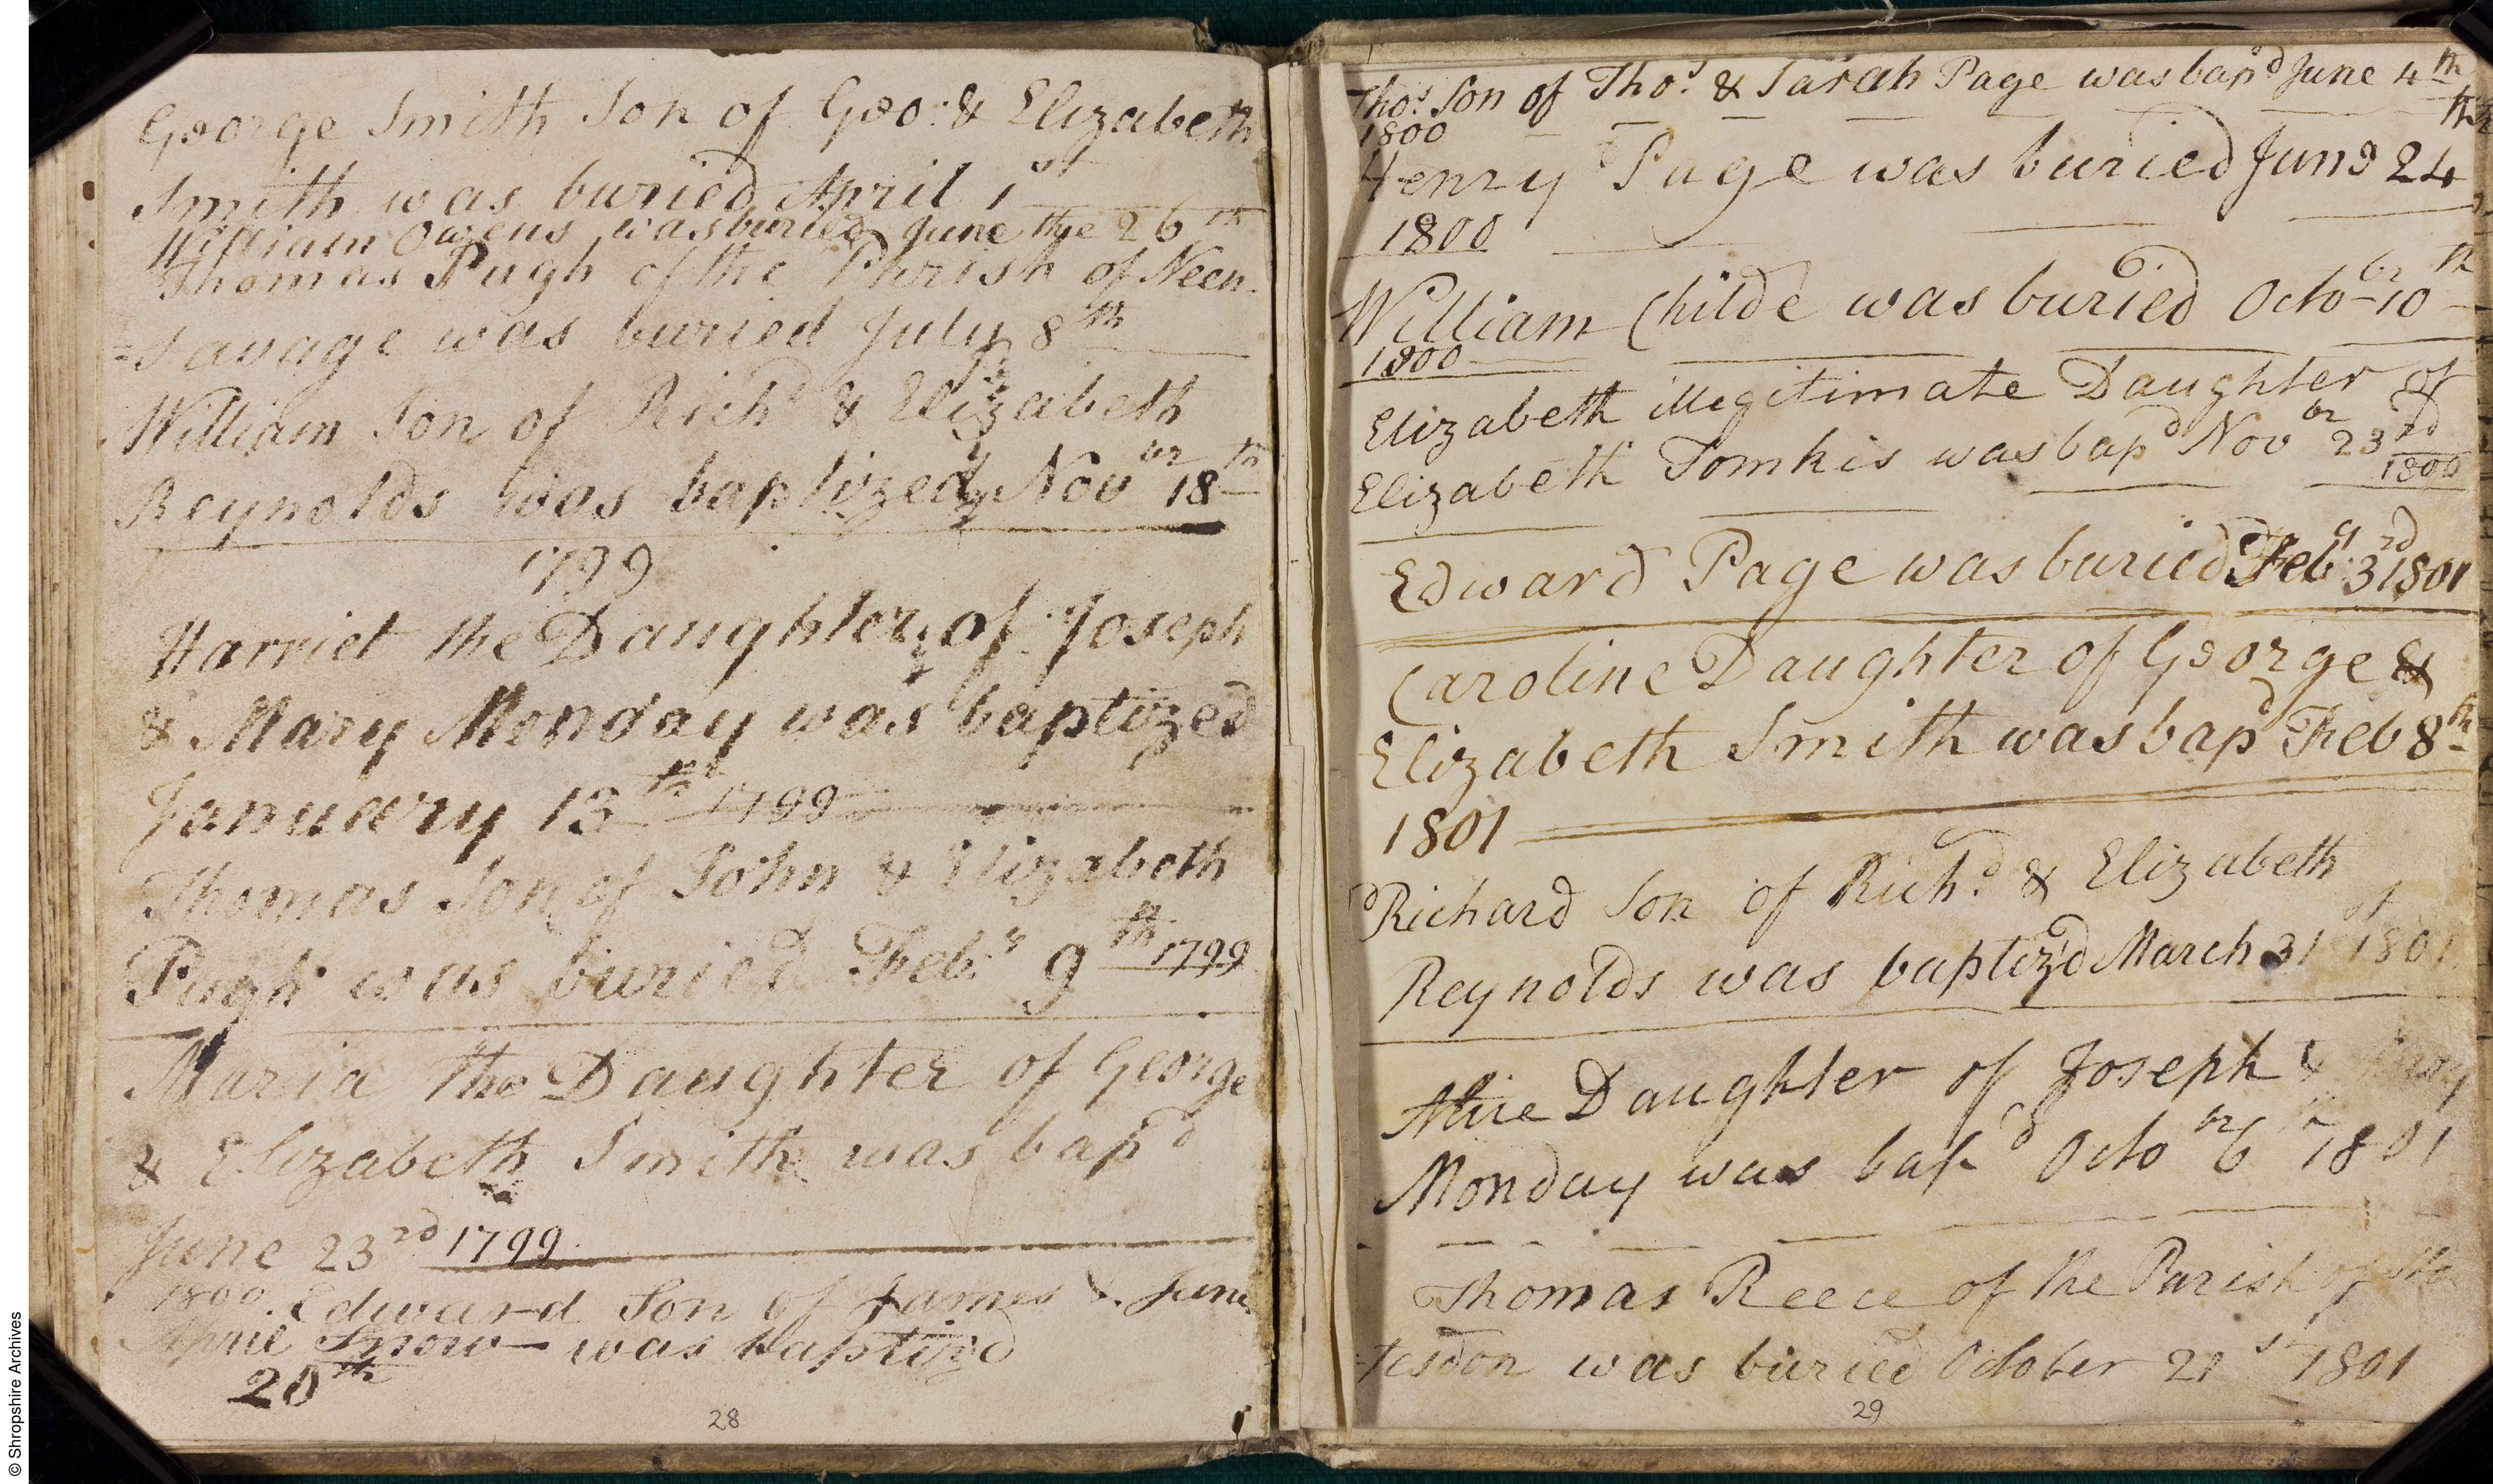 George Smith Son of Geo: & Elizabeth
Smith was buried April 1st
William Owens was buried June the 26th
Thomas Pugh of the Phrish of Neen
=Savage was buried July 8th
William Son of Richd & Elizabeth
Reynolds was baptized Novbr 18th
1799
Harriet the Daughter of Joseph
& Mary Monday was baptized
January 13th 1799
Thomas Son of John & Elizabeth
Pugh was buried Feby 9th 1799
Maria the Daughter of George
& Elizabeth Smith was bapd
June 23rd 1799
1800. Edward Son of James & June
April Snow was baptizd
20th
28
Thos Son of Thos & Sarah Page was bapd June 4th
1800
Henry Page was buried June 24th
1800
William Childe was buried Octobr 10th
1800
Elizabeth illegitimate Daughter of
Elizabeth Tomkis was bapd Novbr 23rd
1800
Edward Page was buried Feby 3rd 1801
Caroline Daughter of George &
Elizabeth Smith was bapd Feb 8th
1801
Richard Son of Richd & Elizabeth
Reynolds was baptiz'd March 31st 1801
Alice Daughter of Joseph & Mary
Monday was bapd Octobr 6th 1801
Thomas Reece of the Parish of Sto
tesdon was buried October 21st 1801
29
© Shropshire Archives